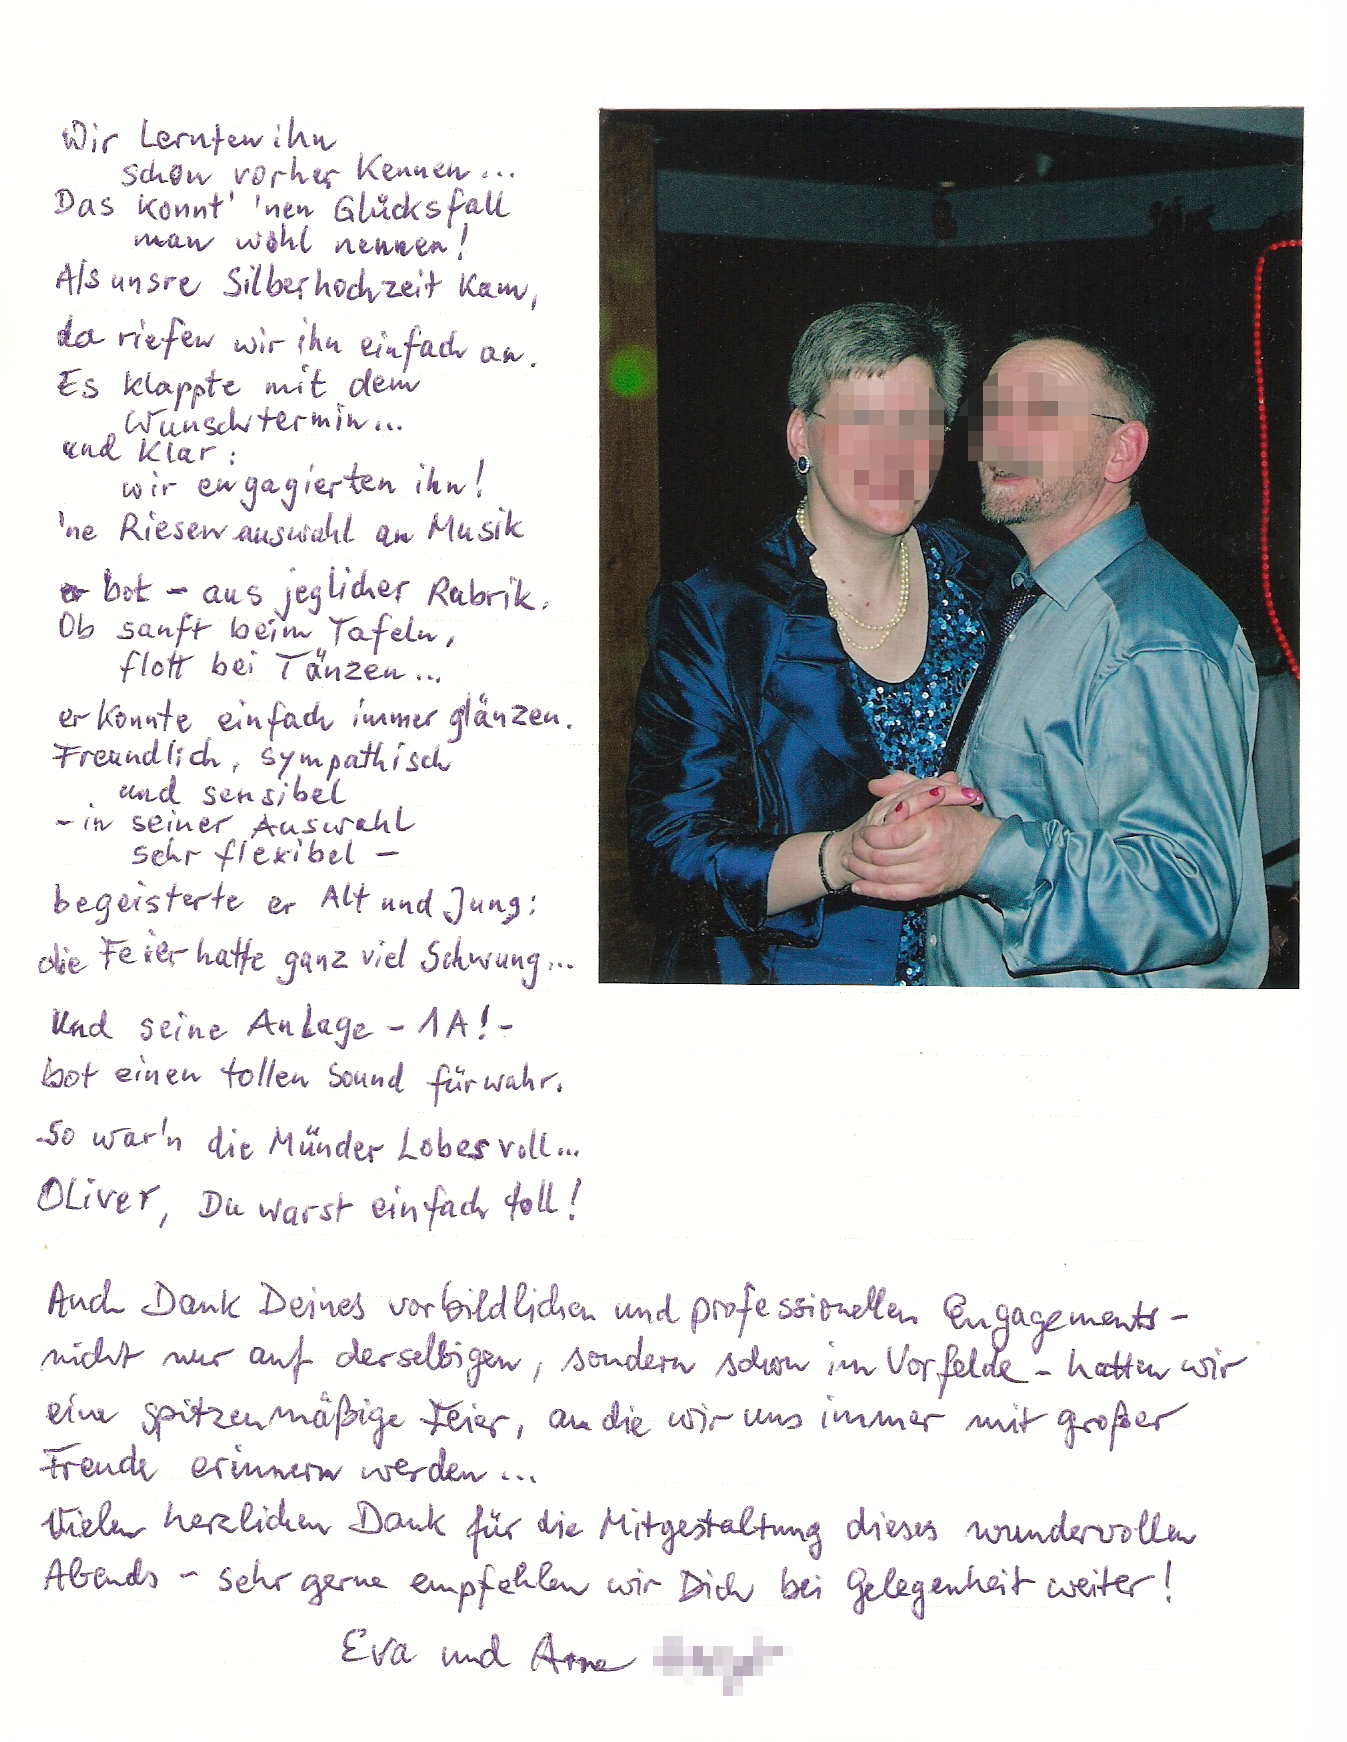 Wir lernten ihn
schon vorher kennen...
Das konnt' 'nen Glücksfall
man wohl nennen!
Als unsre Silberhochzeit kam,
da riefen wir ihn einfach an.
Es klappte mit dem
Wunschtermin...
und klar:
wir engagierten ihn!
'ne Riesenauswahl an Musik
er bot - aus jeglicher Rubrik.
Ob sanft beim Tafeln,
flott bei Tänzen...
er konnte einfach immer glänzen.
Freundlich, sympathisch
und sensibel
- in seiner Auswahl
sehr flexibel -
begeisterte er Alt und Jung:
die Feier hatte ganz viel Schwung...
Und seine Anlage - 1A! -
bot einen tollen Sound fürwahr.
So war'n die Münder Lobes voll...
Oliver, Du warst einfach toll!
Auch Dank Deines vorbildlichen und professionellen Engagements -
nicht nur auf derselbigen, sondern schon im Vorfelde - hatten wir
eine spitzenmäßige Feier, an die wir uns immer mit großer
Freude erinnern werden...
Vielen herzlichen Dank für die Mitgestaltung dieses wundervollen
Abends - sehr gerne empfehlen wir Dich bei Gelegenheit weiter!
Eva und Arne